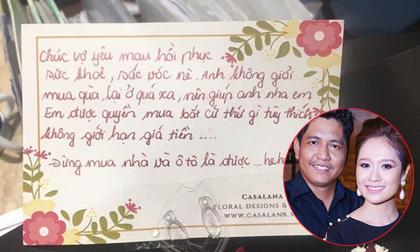 Chúc vợ yêu mau hồi phục
sức khoẻ, sắc vóc nè. Anh không giỏi
mua quà lại ở quá xa, nên giúp anh nha em
Em được quyền mua bất cứ thứ gì tùy thích
không giới hạn giá tiền ....
Đừng mua nhà và ô tô là được ... he
CASALANA
FLORAL DESIGNS &
WWW.CASALANA.V